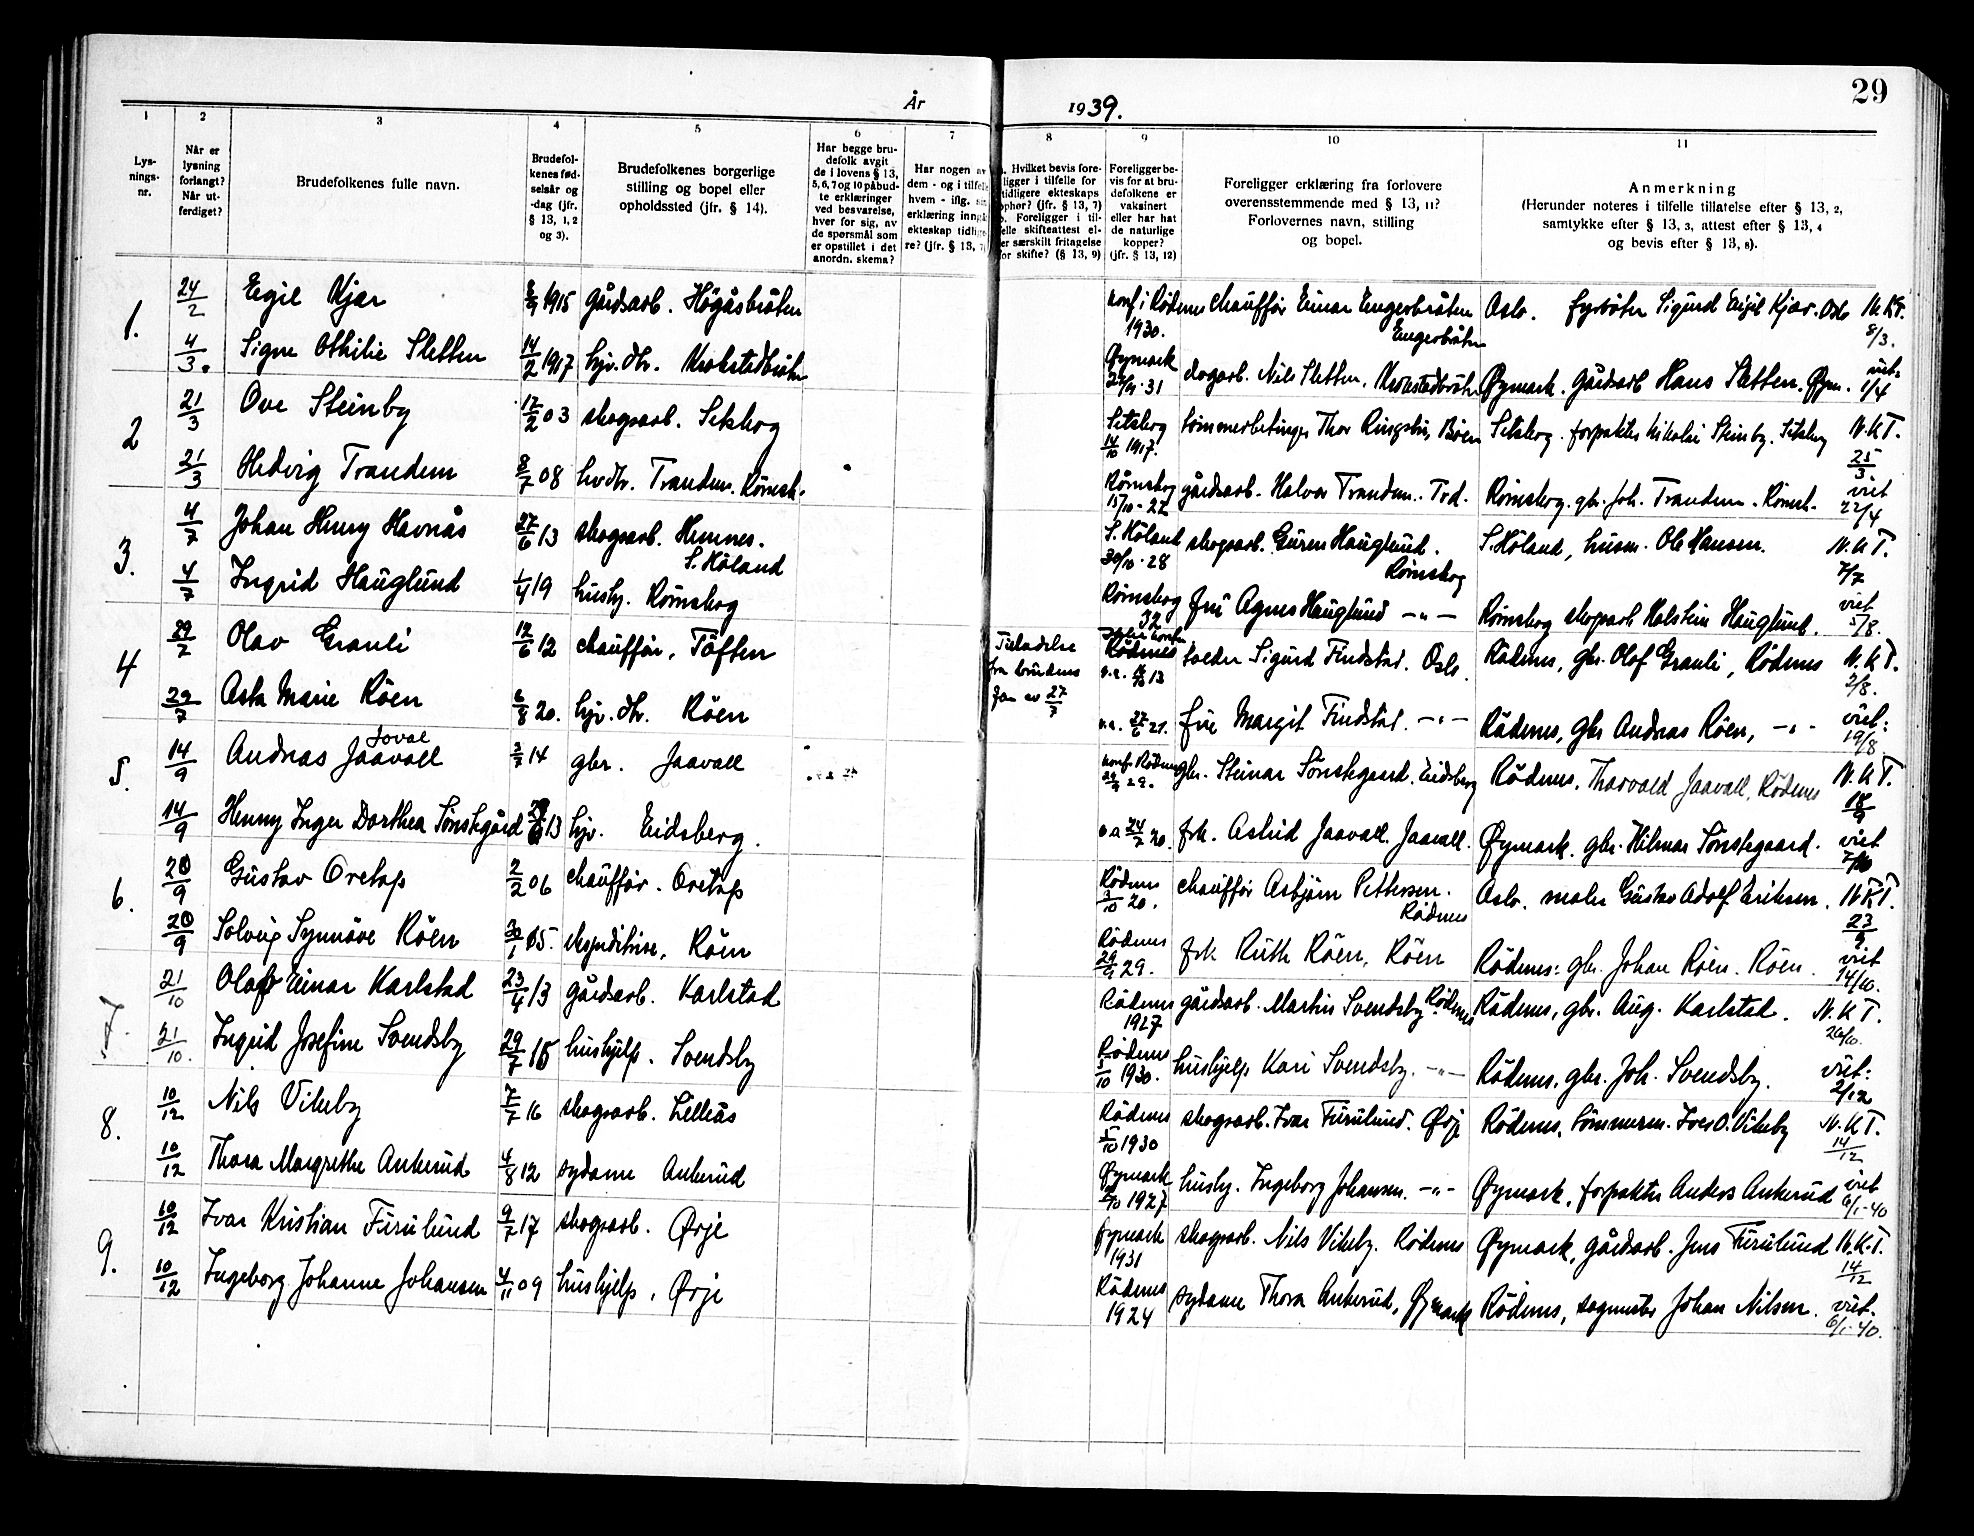 29
År 1939.
1 2 3 4 5 6 7 8 9 10 11
Lysningsnr.
Når er lysning forlangt? Når utferdiget?
Brudefolkenes fulle navn.
Brudefolkenes fødselsår og -dag (jfr. § 13, 1, 2 og 3).
Brudefolkenes borgerlige stilling og bopel eller opholdssted (jfr. § 14).
Har begge brudefolk avgit de i lovens § 13, 5, 6, 7 og 10 påbudte erklæringer ved besvarelse, hver for sig, av de spørsmål som er opstillet i det anordn. skema?
Har nogen av dem - og i tilfelle hvem - iflg.
erklæring inng
ekteskap tidlige
re? (jfr. § 13, 7)
Hvilket bevis fore-
ligger i tilfelle for
tidligere ekteskaps
ophør? (jfr. § 13, 7)
Foreligger i til-
elle skifteattest el-
er særskilt fritagelse
for skifte? (§ 13, 9)
Foreligger bevis for at brudefolkene er vaksinert eller har hat de naturlige kopper? (jfr. § 13, 12)
Foreligger erklæring fra forlovere overensstemmende med § 13, 11? Forlovernes navn, stilling og bopel.
Anmerkning
(Herunder noteres i tilfelle tillatelse efter § 13, 2, samtykke efter § 13, 3, attest efter § 13, 4 og bevis efter § 13, 8).
1. 24/2 Egil Kjær 1915 gårdsarb. Högåsbråten konf i Rödenes 1930. chauffør Einar Engerbråten Engerbråten Oslo. fyrbøter Sigurd Eigil Kjær. Oslo N.K.T. 8/3.
4/3. Signe Othilie Sletten 14/2 1917 hjv. dtr. Krokstedbråten Øymark 31 skogarb. Nils Sletten. Krokstedbråten Øymark. gårdsarb Hans Sletten. Øym. viet. 1/4
2 21/3 Ove Steinby 17/2 03 skogsarb. Setskog Setskog 14/10 1917. tömmerbetinger Thor Ringsby, Böen Setskog. forpakter Nikolai Steinby. Setskog N.K.T. 25/3
21/3 Hedvig Trandem 8/7 08 hvdtr. Trandem. Römsk. Römskog 15/10-22 gårdsarb. Halvor Trandem. Trd. Römskog. gbr. Joh. Trandem. Römsk. viet 22/4
3. 4/7 Johan Henry Havnås 27/6 13 skogsarb. Hemnes. S. Höland S. Höland 30/10-28 skogsarb. Güren Hauglund. Römskog S. Höland, husm. Ole Hansen. N.K.T. 7/7
4/7 Ingrid Hauglund 1/4 19 hushj. Römskog Römskog 32 fru Agnes Hauglund -"- Römskog skogsarb Halstein Hauglund. viet 5/8.
4 29/7 Olav Grauli 12/6 12 chauffør, Töften Tilladelse fra brudens far av 27/7 Rödenes 13 Sigurd Tindstad. Oslo. Rödenes, gbr. Olaf Grauli, Rödenes N.K.T. 2/8.
29/7 Asta Marie Röen 6/8 20. hjv. dtr. Röen 27/6 21. fru Margit Tindstad. -"- Rödenes, gbr Andreas Röen, -"- viet: 19/8.
5. 14/9 Andreas Jaavall Joval 14 gbr. Jaavall konf. Rödenes 29. gbr. Steinar Sönstegaard. Eidsberg Rödenes. Thorvald Jaavall, Rödenes N.K.T. 18/9
14/9 Henny Inger Dorthea Sönstegård 13 hjv. Eidsberg. 24/7 20. frk. Astrid Jaavall. Jaavall. Øymark. gbr. Hilmar Sönstegaard. viet 7/10
6. 20/9 Gustav Oretop 2/2 06 chauffør. Oretop Rödenes 3/10 20. chauffør Asbjörn Pettersen. Rödenes Oslo. maler Gustav Adolf Eriksen. N.K.T. 23/9
20/9 Solveig Synnöve Röen 30/1 05. ekspeditrise, Röen Rödenes 29/9 29. frk Ruth Röen, Röen Rödenes: gbr. Johan Röen. Röen. viet 14/10.
7. 21/10 Olaf Einar Karlstad 23/4 13 gårdsarb. Karlstad Rödenes 1927 gårdsarb. Martin Svendsby Rödenes Rödenes, gbr. Aug. Karlstad. N.K.T. 26/10.
21/10. Ingrid Josefine Svendsby 29/7 15 hushjelp. Svendsby Rödenes 5/10 1930. hushjelp Kari Svendsby. -"- Rödenes, gbr. Joh. Svendsby. viet: 2/12
8. 10/12 Nils Vikeby 7/7 16 skogsarb. Lilleås Rödenes 5/10 1930 skogsarb. Ivar Furulund. Ørje Rödenes, tömmerm. Iver O. Vikeby N.K.T. 14/12
10/12 Thora Margrethe Ankerud 4/8 12 sydame Ankerud Øymark 1927 hushj. Ingeborg Johansen. -"- Øymark, forpakter Anders Ankerud viet 6/1-40
9. 10/12 Ivar Kristian Furulund 9/7 17 skogsarb. Ørje Øymark 1931 skogsarb. Nils Vikeby. Rödenes Øymark, gårdsarb. Jens Furulund N.K.T. 14/12
10/12 Ingeborg Johanne Johansen 4/11 09 hushjelp, Ørje Rödenes 1924 sydame Thora Ankerud, Øymark Rödenes, sagmester Johan Nilsen. viet. 6/1-40.